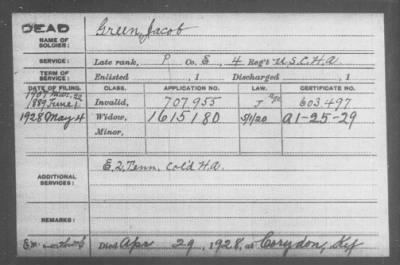 DEAD
NAME OF SOLDIER: Green, Jacob
SERVICE: Late rank, P Co. E, 4 Reg't U.S.C.H.A.
TERM OF SERVICE: Enlisted , 1 Discharged , 1
DATE OF FILING. CLASS. APPLICATION NO. LAW. CERTIFICATE NO.
1889 June 1 Invalid, 707,955 J 603,497
1928 May 4 Widow, 1615180 5/1/20 A1-25-29
Minor,
ADDITIONAL SERVICES: E, 2, Tenn. Col'd H.A.
REMARKS:
Died Apr 29, 1928, at Corydon, Ky